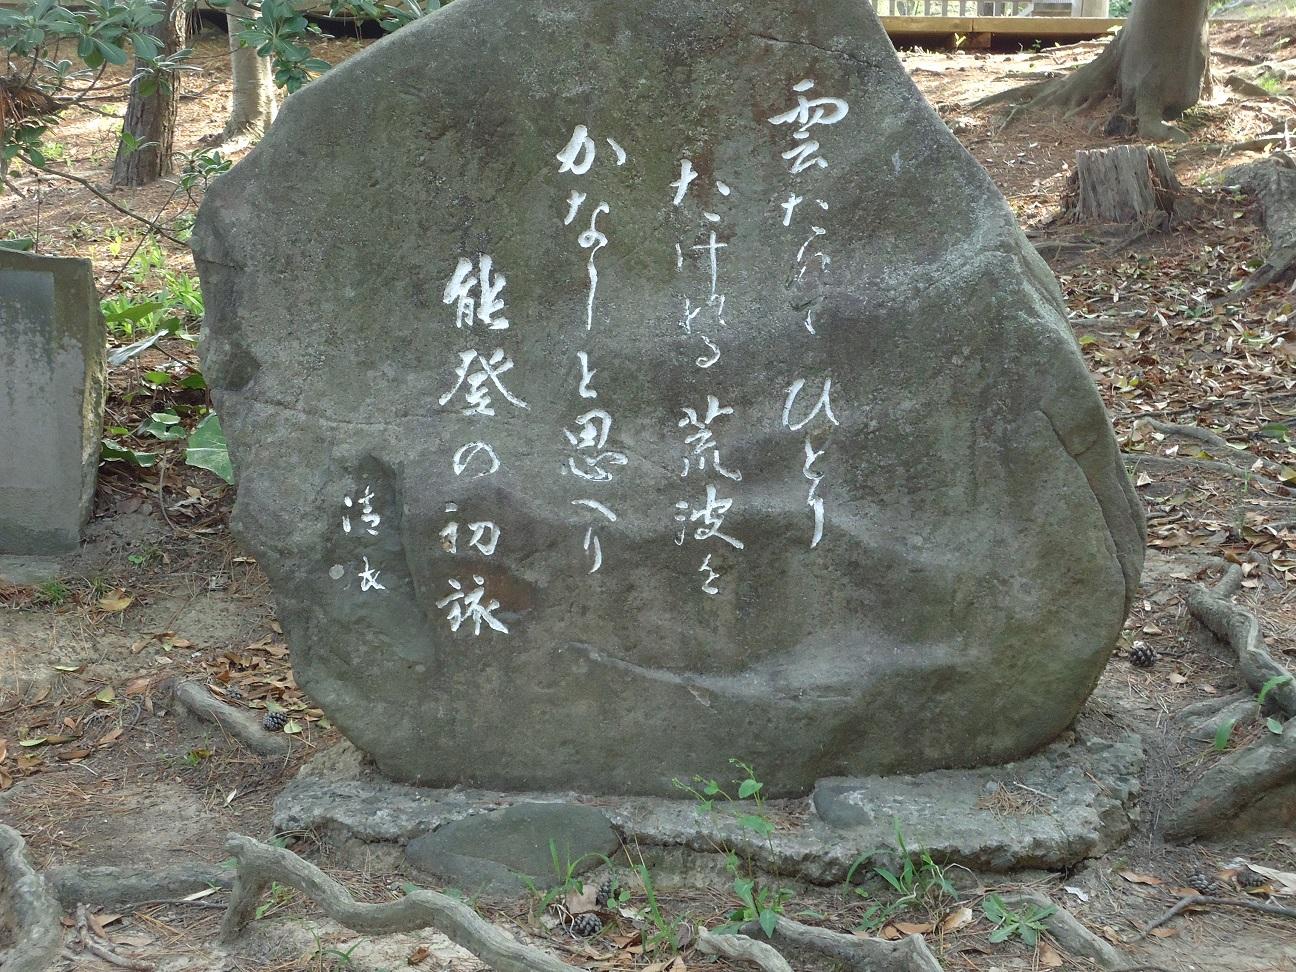 雲たれて ひとり
たけれる 荒波を
かなしと思へり
能登の初旅
清張